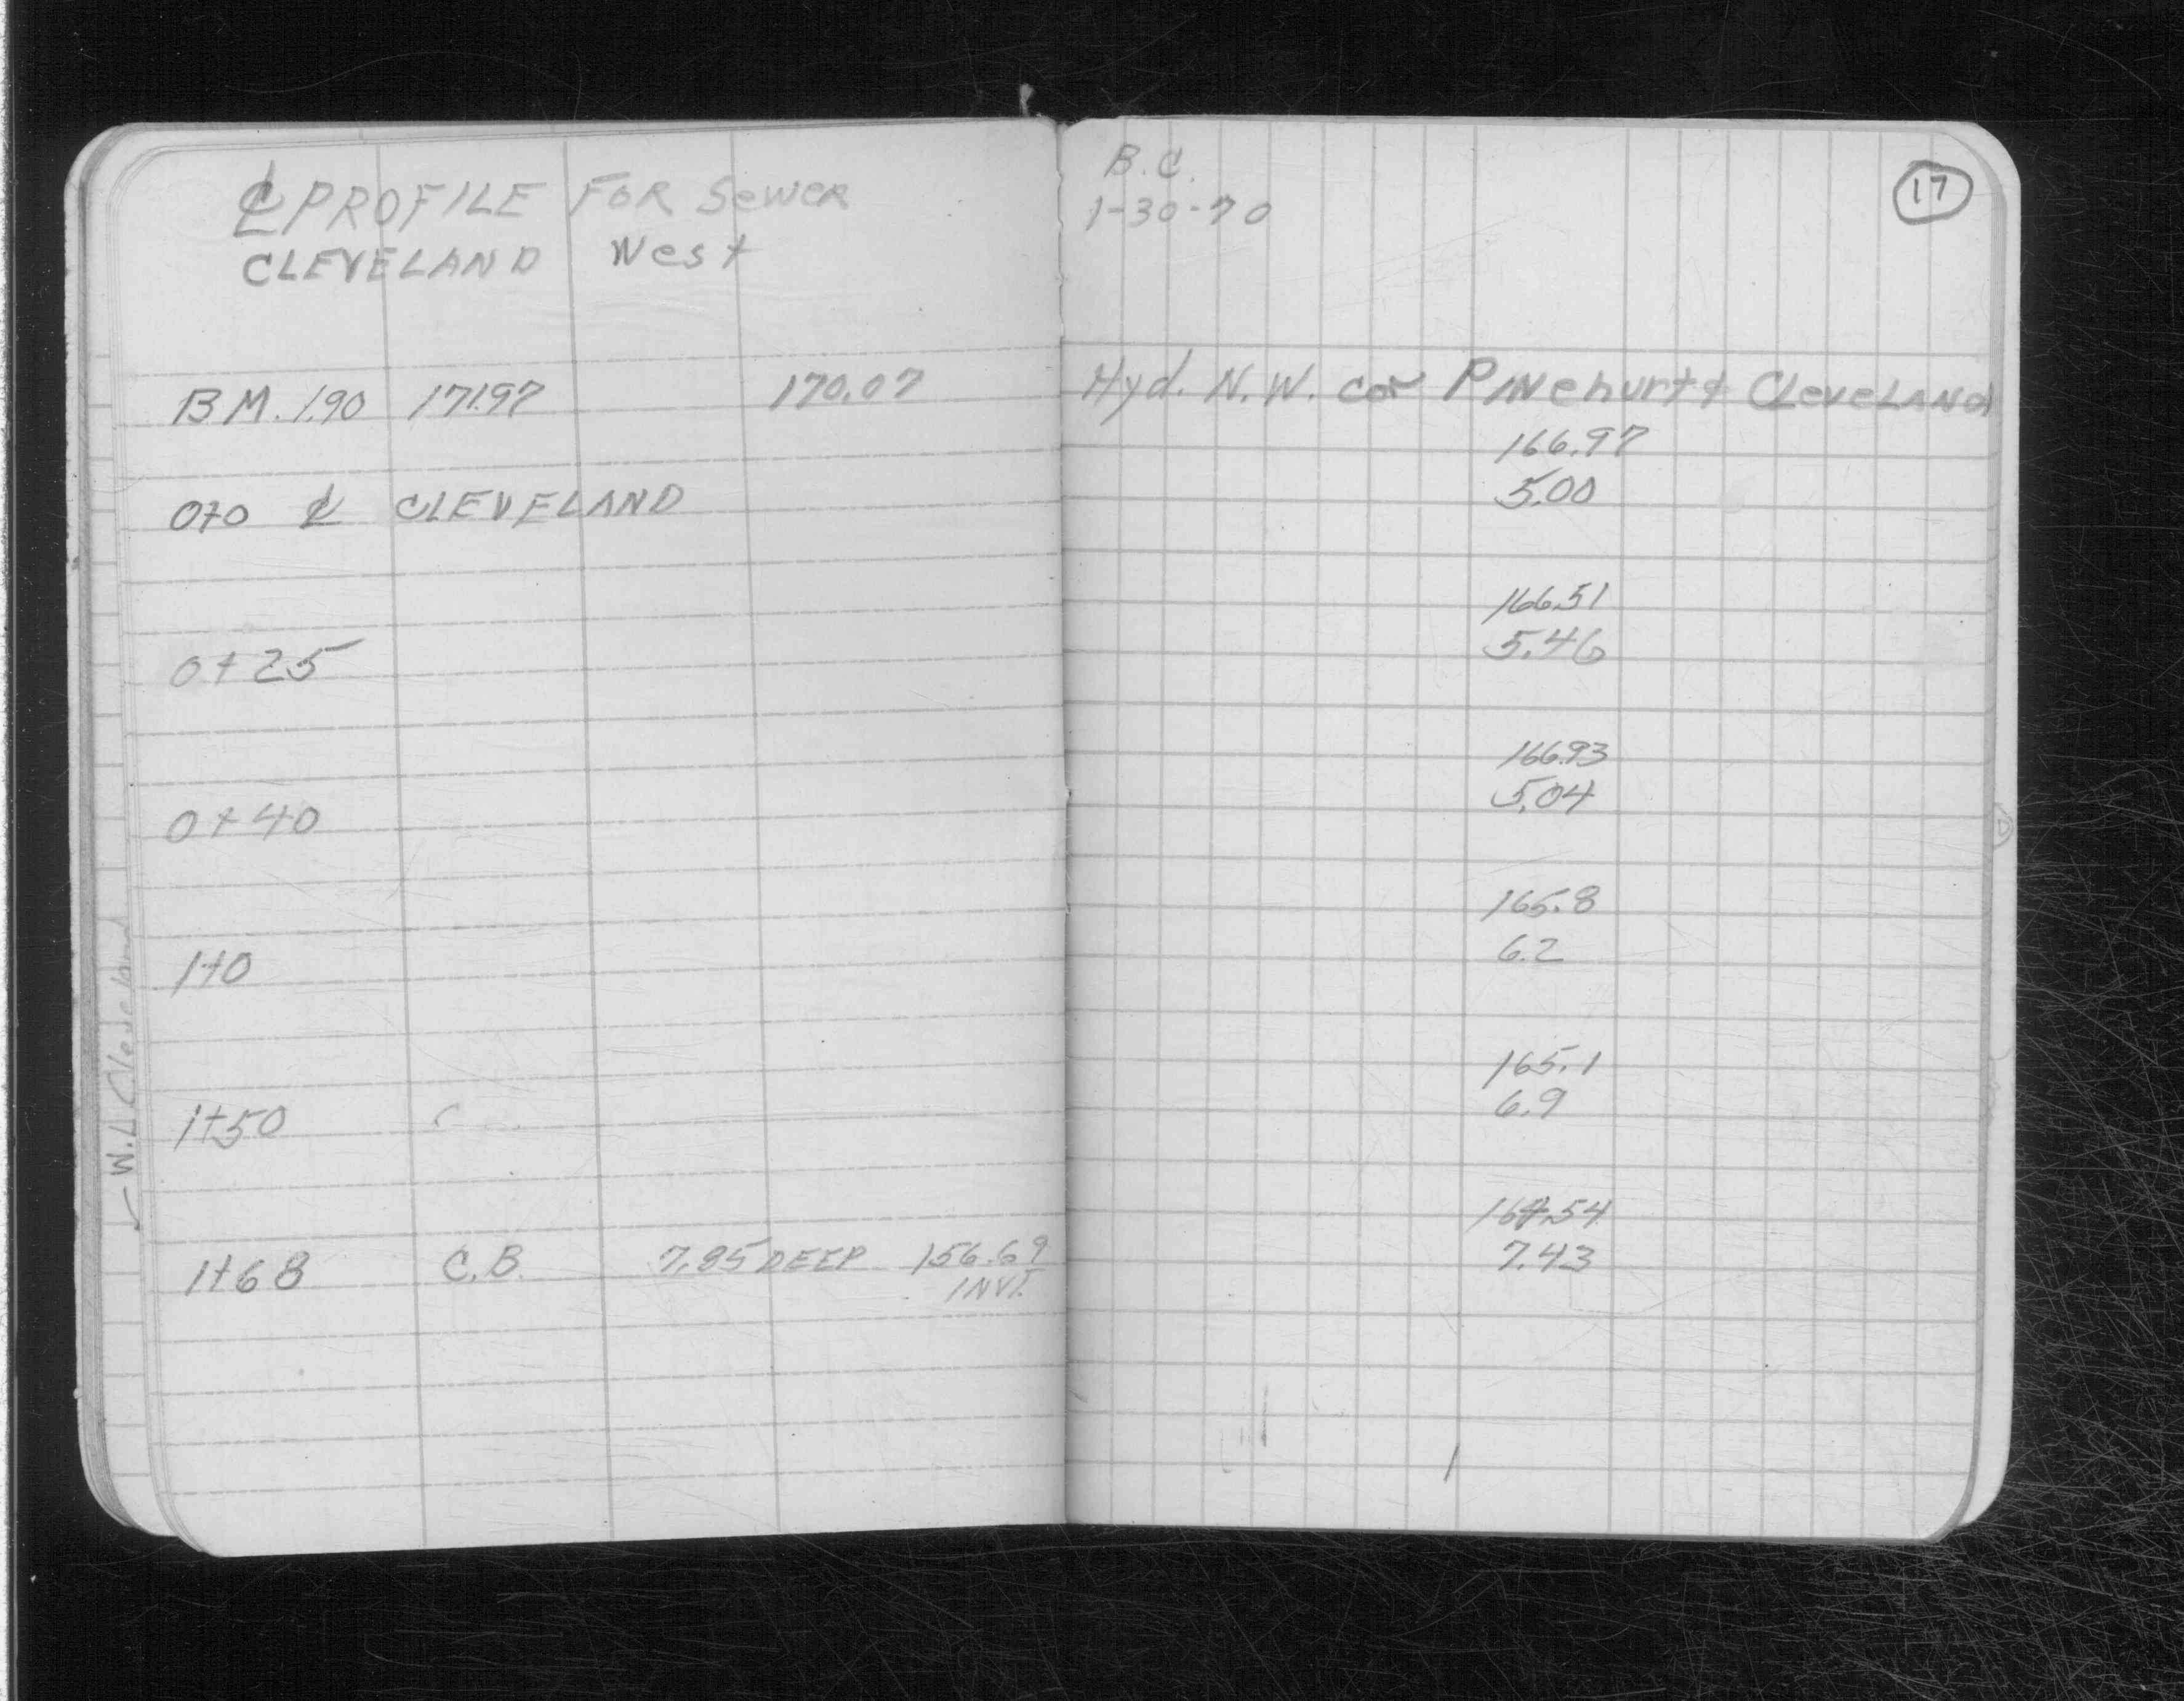 ℄ PROFILE FOR SeweR
CLEVELAND West
BM. 1.90 171.97 170.07
0+0 ℄ CLEVELAND
0+25
0+40
1+0
1+50
1+68 C.B. 7.85 DEEP 156.69
INVT.
W.L Cleveland
B.C.
1-30-70
17
Hyd. N.W. cor PINehurt & CleveLANd
166.97
5.00
166.51
5.46
166.93
5.04
165.8
6.2
165.1
6.9
164.54
7.43